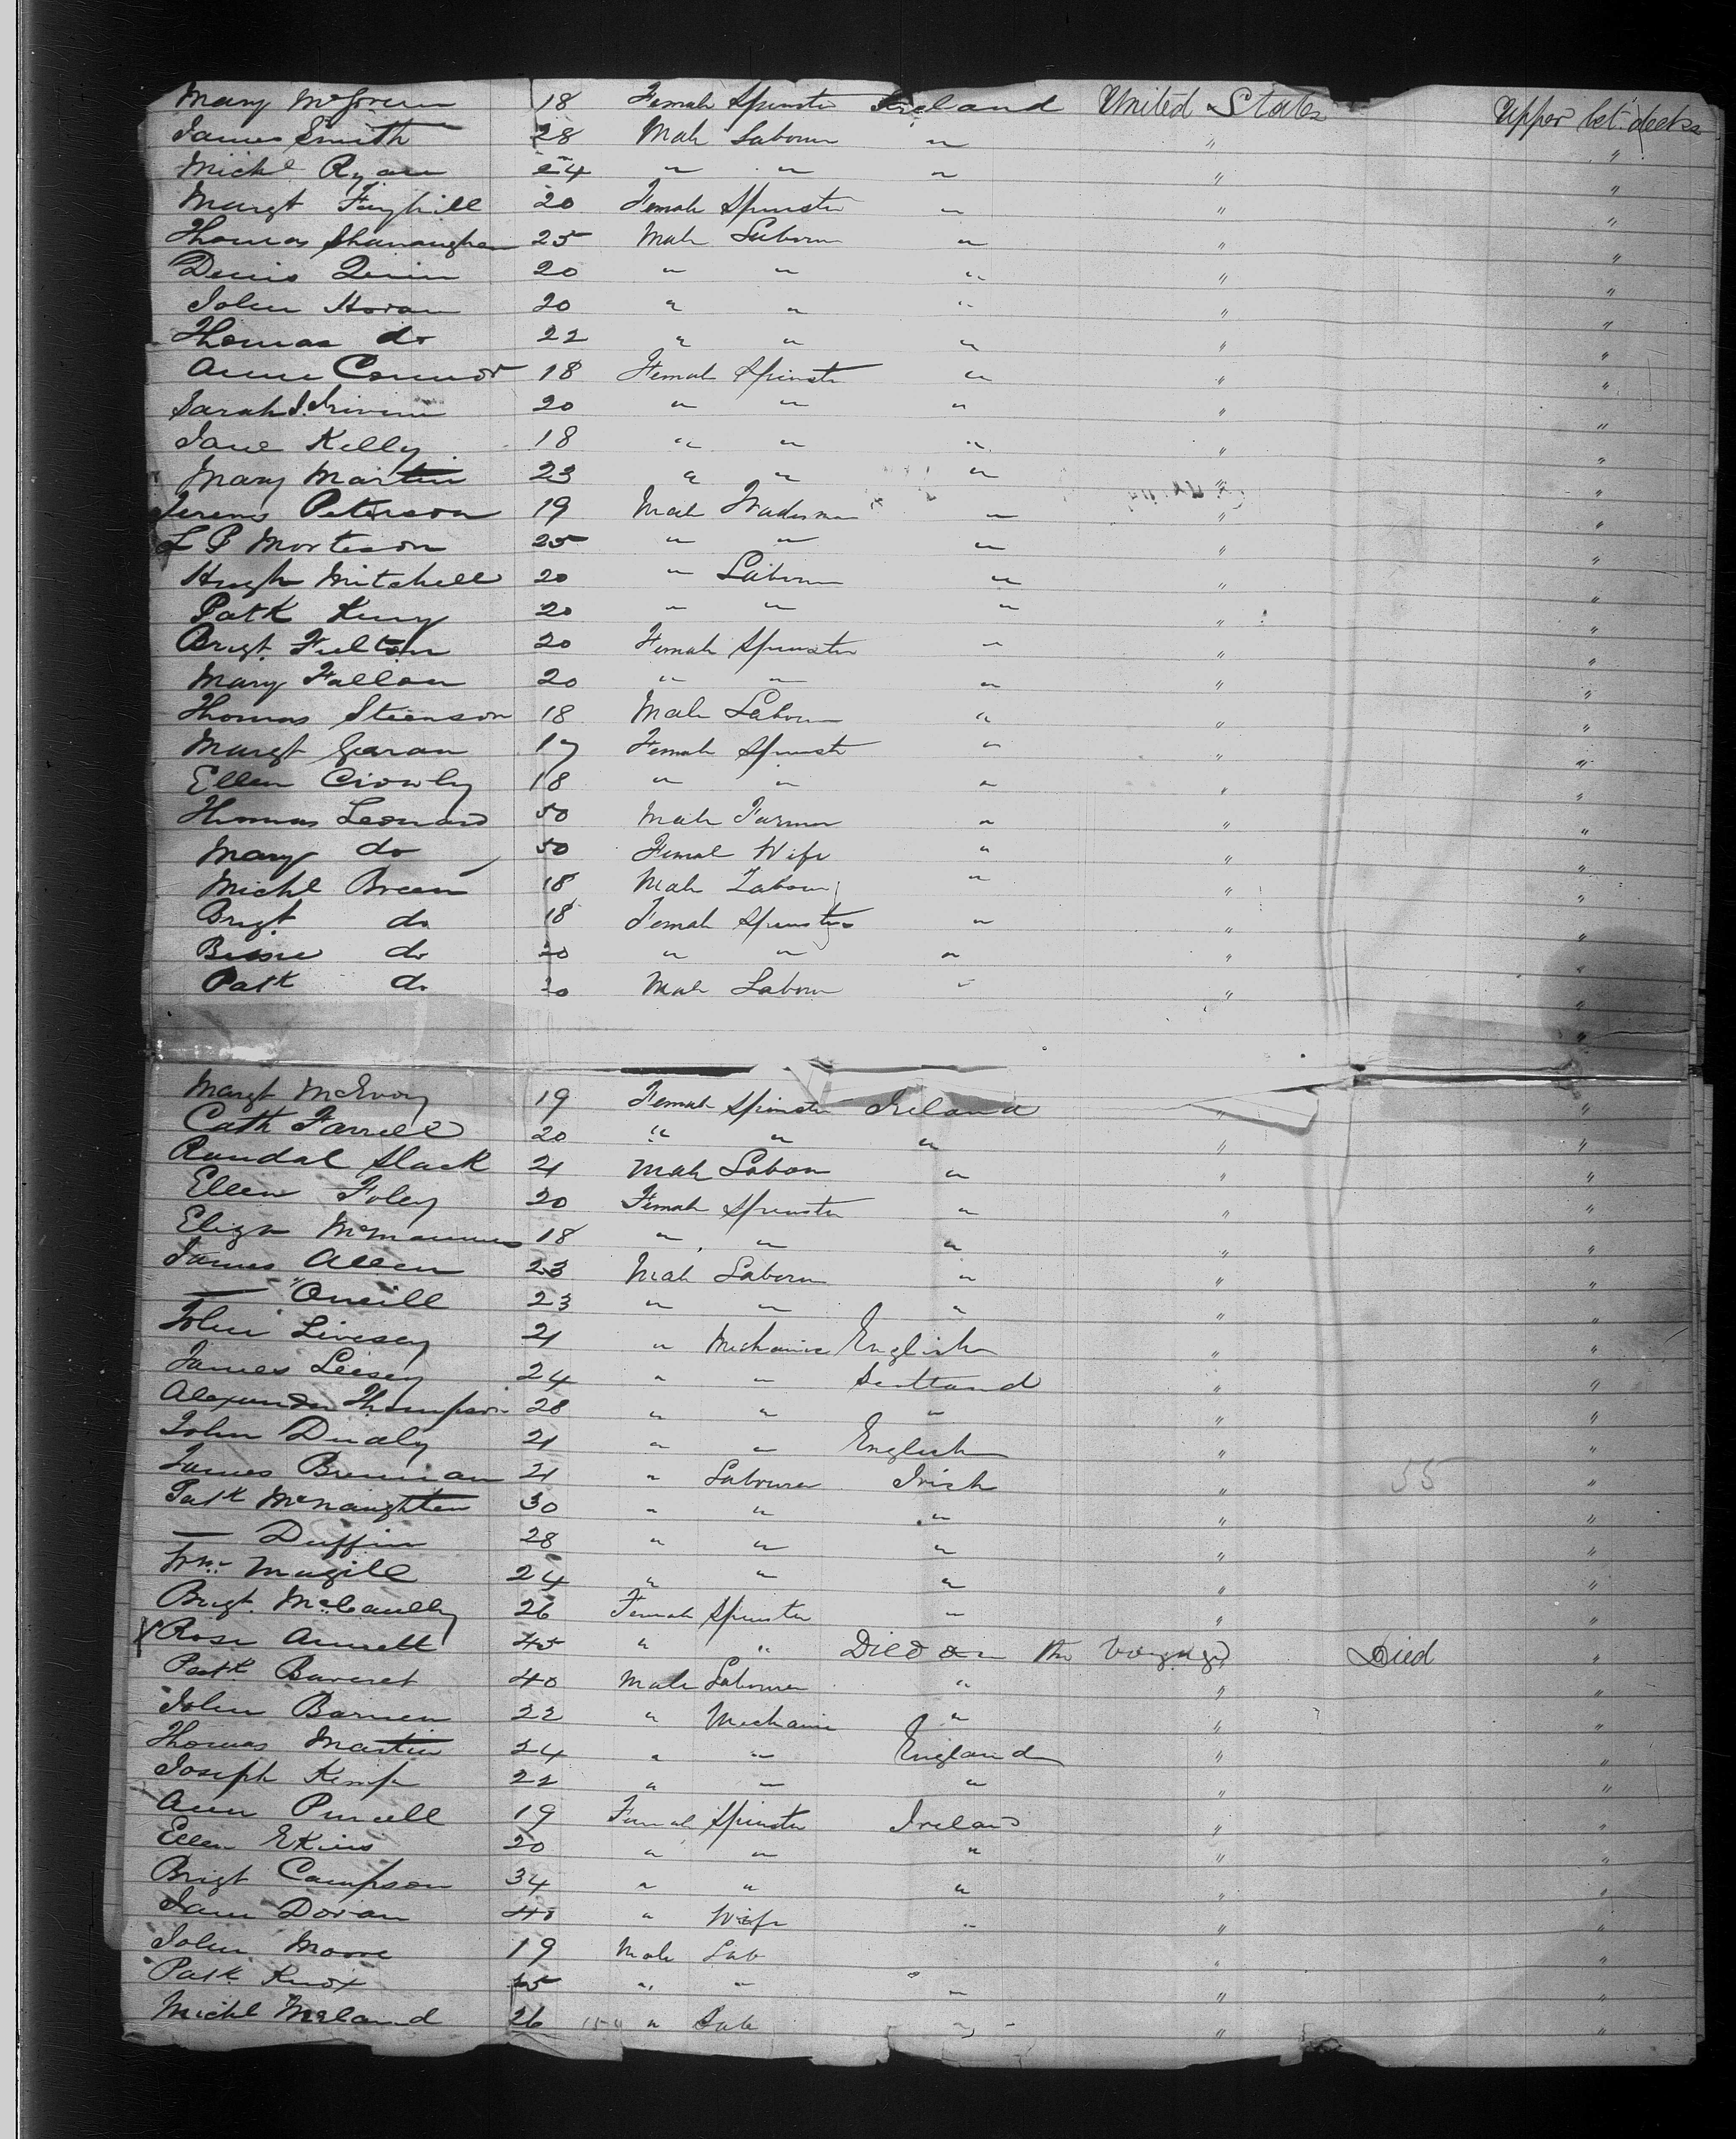 Mary McGovern 18 Female Spinster Ireland United States Upper bet. decks
James Smith 28 Male Labourer " " "
Michl Ryan 24 " " " " "
Margt Fayhill 20 Female Spinster " " "
Thomas Shanaughan 25 Male Labourer " " "
Denis Quinn 20 " " " " "
John Horan 20 " " " " "
Thomas do 22 " " " " "
Anne Connor 18 Female Spinster " " "
Sarah J. 20 " " " " "
Jane Kelly 18 " " " " "
Mary Martin 23 " " " " "
Peterson 19 Male Tradesman " " "
L P Morteson 25 " " " " "
Hugh Mitchell 20 " Labourer " " "
Patk 20 " " " " "
Brigt. Fulton 20 Female Spinster " " "
Mary Fallon 20 " " " " "
Thomas Steenson 18 Male Labourer " " "
Margt Garan 17 Female Spinster " " "
Ellen Crowly 18 " " " " "
Thomas Leonard 50 Male Farmer " " "
Mary do 50 Female Wife " " "
Michl Breen 18 Male Labourer " " "
Brigt. do 18 Female Spinster " " "
Bessie do 20 " " " " "
Patk do 20 Male Labourer " " "
Margt McEvoy 19 Female Spinster Ireland " "
Cath Farrell 20 " " " " "
Randal Slack 21 Male Labour " " "
Ellen Foley 20 Female Spinster " " "
Eliza McManus 18 " " " " "
James Allen 23 Male Labourer " " "
— " Oneill 23 " " " " "
John Livesey 21 " Mechanic English " "
James Leesey 24 " " Scotland " "
Alexander Thompson 28 " " " " "
John Dualy 21 " " English " "
James Brennan 21 " Labourer Irish " 55 "
Patk McNaughten 30 " " " " "
— Duffin 28 " " " " "
Wm. Magill 24 " " " " "
Brigt. McCaully 26 Female Spinster " " "
X Rose Annett 45 " " Died on the voyage " Died "
Patk 40 Male Labourer " " "
John Barnen 22 " Mechanic " " "
Thomas Martin 24 " " England " "
Joseph Kemp 22 " " " " "
Ann Purcell 19 Female Spinster Ireland " "
Ellen Ekins 20 " " " " "
Brigt Campson 34 " " " " "
Jane Doran 40 " Wife " " "
John Moore 19 Male Lab " " "
Patk Knox " " " " "
Michl 26 " Lab " " "